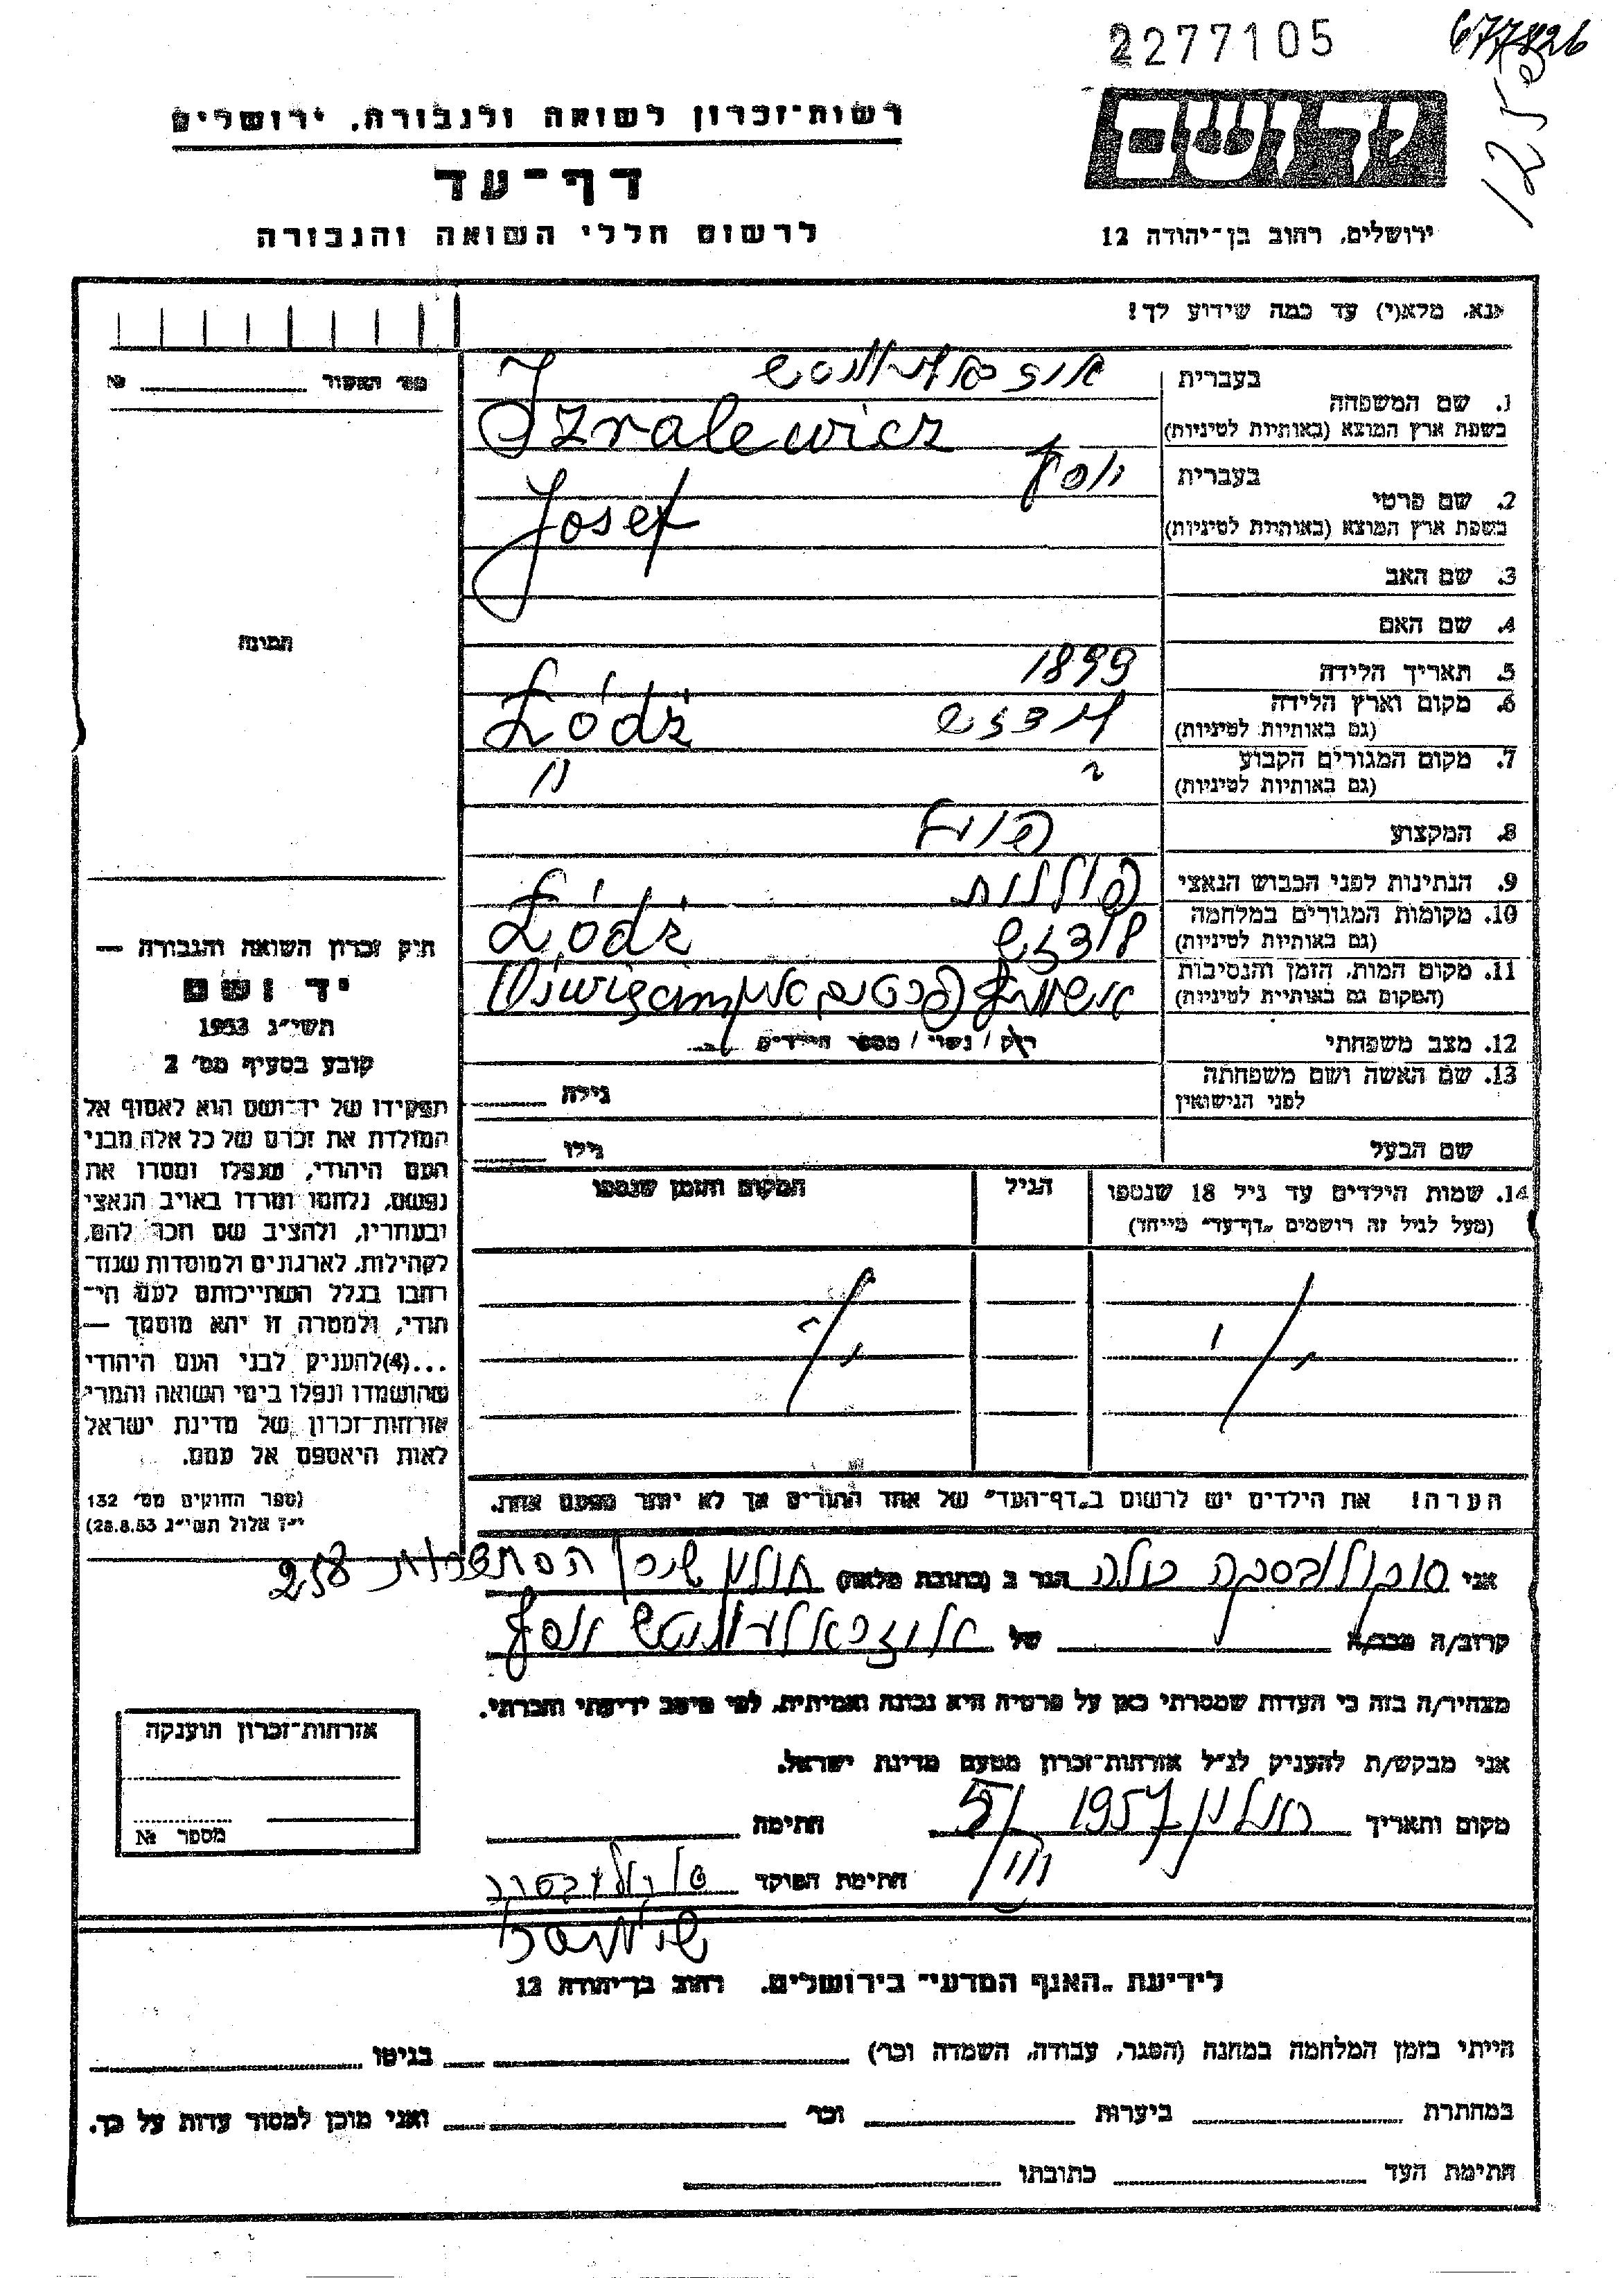 2277105
677826
125
רשות־זכרון לשואה ולגבורה, ירושלים
דף־עד
לרשום חללי השואה והגבורה
יד ושם
ירושלים, רחוב בן־יהודה 12
אנא, מלא(י) עד כמה שידוע לך!
מס׳ האשור № ________
תמונה
בעברית
1. שם המשפחה
בשפת ארץ המוצא (באותיות לטיניות) Izralewicz
בעברית יוסף
2. שם פרטי
בשפת ארץ המוצא (באותיות לטיניות) Josef
3. שם האב
4. שם האם
5. תאריך הלידה 1899
6. מקום וארץ הלידה לודז׳ Łódź
(גם באותיות לטיניות)
7. מקום המגורים הקבוע " "
(גם באותיות לטיניות)
8. המקצוע
9. הנתינות לפני הכבוש הנאצי פולנית
10. מקומות המגורים במלחמה Łódź
(גם באותיות לטיניות)
11. מקום המות, הזמן והנסיבות
(המקום גם באותיות לטיניות)
12. מצב משפחתי רוק / נשוי / מספר הילדים
13. שם האשה ושם משפחתה
לפני הנישואין גילה
שם הבעל גילו
14. שמות הילדים עד גיל 18 שנספו הגיל המקום והזמן שנספו
(מעל לגיל זה רושמים „דף־עד״ מייחד)
הערה! את הילדים יש לרשום ב„דף־העד״ של אחד ההורים אך לא יותר מפעם אחת.
תיק זכרון השואה והגבורה —
יד ושם
תשי״ג 1953
קובע בסעיף מס׳ 2
תפקידו של יד־ושם הוא לאסוף אל
המולדת את זכרם של כל אלה מבני
העם היהודי, שנפלו ומסרו את
נפשם, נלחמו ומרדו באויב הנאצי
ובעוזריו, ולהציב שם וזכר להם,
לקהילות, לארגונים ולמוסדות שנח־
רבו בגלל השתייכותם לעם הי־
הודי, ולמטרה זו יהא מוסמך —
...(4)להעניק לבני העם היהודי
שהושמדו ונפלו בימי השואה והמרי
אזרחות־זכרון של מדינת ישראל
לאות היאספם אל עמם.
(ספר החוקים מס׳ 132
י״ז אלול תשי״ג 28.8.53)
אני הגר ב (כתובת מלאה) חולון שיכון הסתדרות 258
קרוב/ה מכר/ה של יוסף
מצהיר/ה בזה כי העדות שמסרתי כאן על פרטיה היא נכונה ואמיתית, לפי מיטב ידיעתי והכרתי.
אני מבקש/ת להעניק לנ״ל אזרחות־זכרון מטעם מדינת ישראל.
מקום ותאריך חולון 1957 חתימה
חתימת הפוקד
אזרחות־זכרון הוענקה
מספר №
לידיעת „האגף המדעי״ בירושלים, רחוב בן־יהודה 12
הייתי בזמן המלחמה במחנה (הסגר, עבודה, השמדה וכו׳) בגיטו
במחתרת ביערות וכו׳ ואני מוכן למסור עדות על כך.
חתימת העד כתובתו